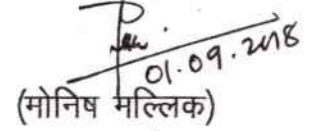 01.09.2018
(मोनिष मल्लिक)